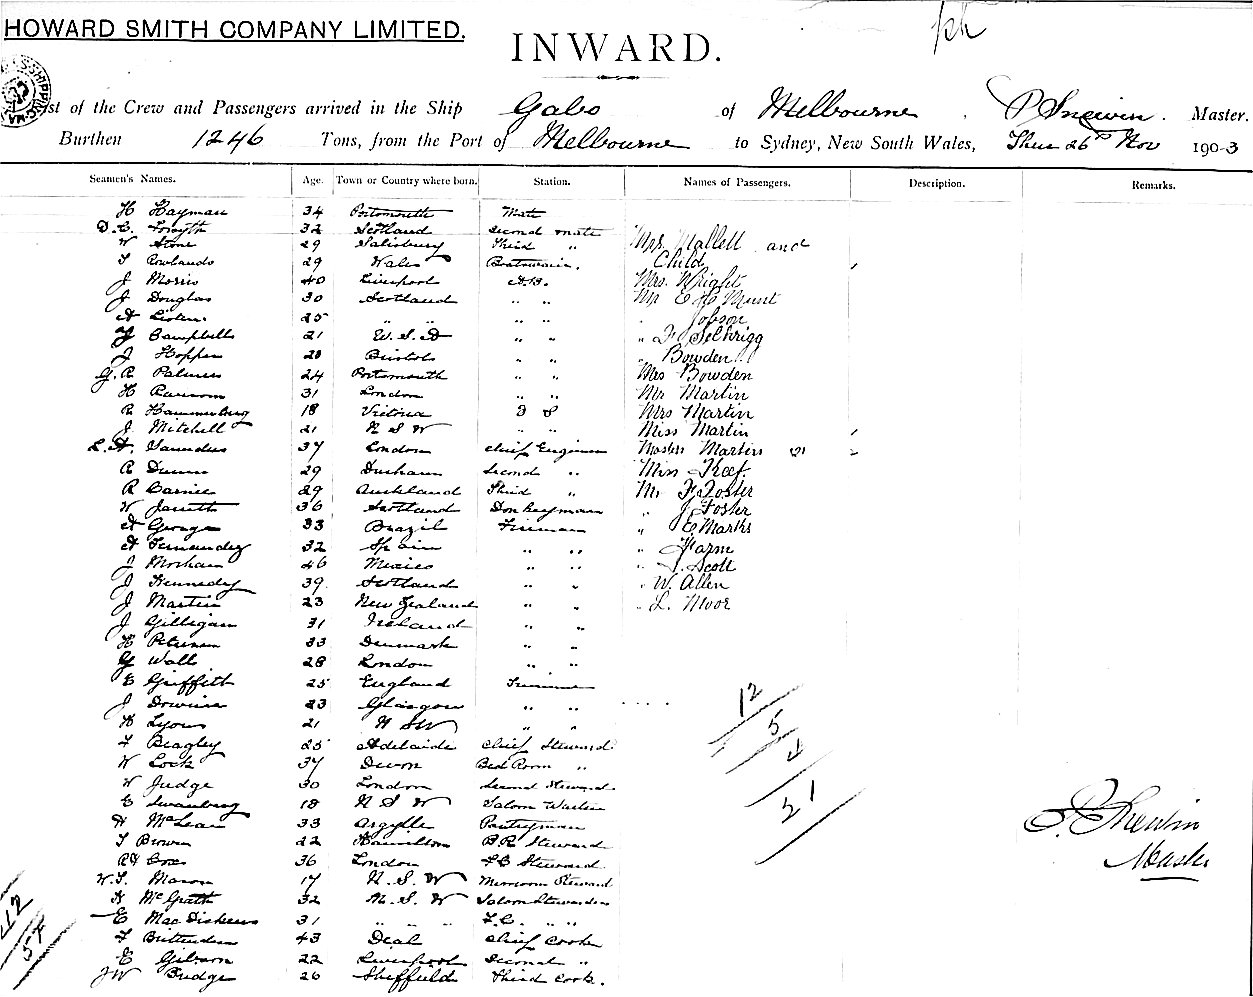 HOWARD SMITH COMPANY LIMITED.
INWARD.
List of the Crew and Passengers arrived in the Ship Gabo of Melbourne, P Snewin. Master.
Burthen 1246 Tons, from the Port of Melbourne to Sydney, New South Wales, Thur 26th Nov 1903
Seamen's Names. Age. Town or Country where born. Station. Names of Passengers. Description. Remarks.
H Hayman 34 Portsmouth Mate
D. C. Forsyth 32 Scotland Second mate
W Stone 29 Salisbury Third " Mrs. Mallett and
T Rowlands 29 Wales Boatswain. Child
J Morris 40 Liverpool A.B. Mrs. Wright
J Douglas 30 Scotland " " Mr Hunt
A Liston 25 " " " " " Jobson
Campbell 21 U.S.A " " " F Selkrigg
J Hopper 28 Bristol " " " Bowden
G. R Palmer 24 Portsmouth " " Mrs Bowden
H Ransom 31 London " " Mr Martin
R Hammerberg 18 Victoria O S Mrs Martin
J Mitchell 21 N S W " " Miss Martin
L. A. Saunders 37 London Chief Engineer Masters Martin (2)
R Dunn 29 Durham Second " Miss Keef.
R Carnie 29 Auckland Third " Mr F Foster
W Jarrett 36 Scotland Donkeyman " J Foster
A George 33 Brazil Fireman " E Marks
A Fernandez 32 Spain " " " Farm
J Morhan 46 Mexico " " " Scott
J Kennedy 39 Scotland " " " W. Allen
J Martin 23 New Zealand " " " L. Moor
J Gilligan 31 Ireland " "
H Petersen 33 Denmark " "
G Wall 28 London " "
E Griffith 25 England Trimmer
J Downie 23 Glasgow " "
H Lyons 21 N S W " "
F Beagley 25 Adelaide Chief Steward
W Lock 37 Devon Bed Room "
W Judge 30 London Second Steward
E Swanberg 18 N S W Saloon Waiter
A McLean 33 Argylle Pantryman
T Brown 22 Hamilton B.R Steward
Cox 36 London F.C Steward
W. T. Mason 17 N. S. W Messroom Steward
McGrath 32 N. S. W Saloon Stewardess
E MacDiskens 31 " " " F.C. " "
F Bittenden 43 Deal Chief Cook
E Gibson 22 Liverpool Second "
J W Budge 26 Sheffield Third Cook.
12
5
4
21
P. Snewin
Master
42
54